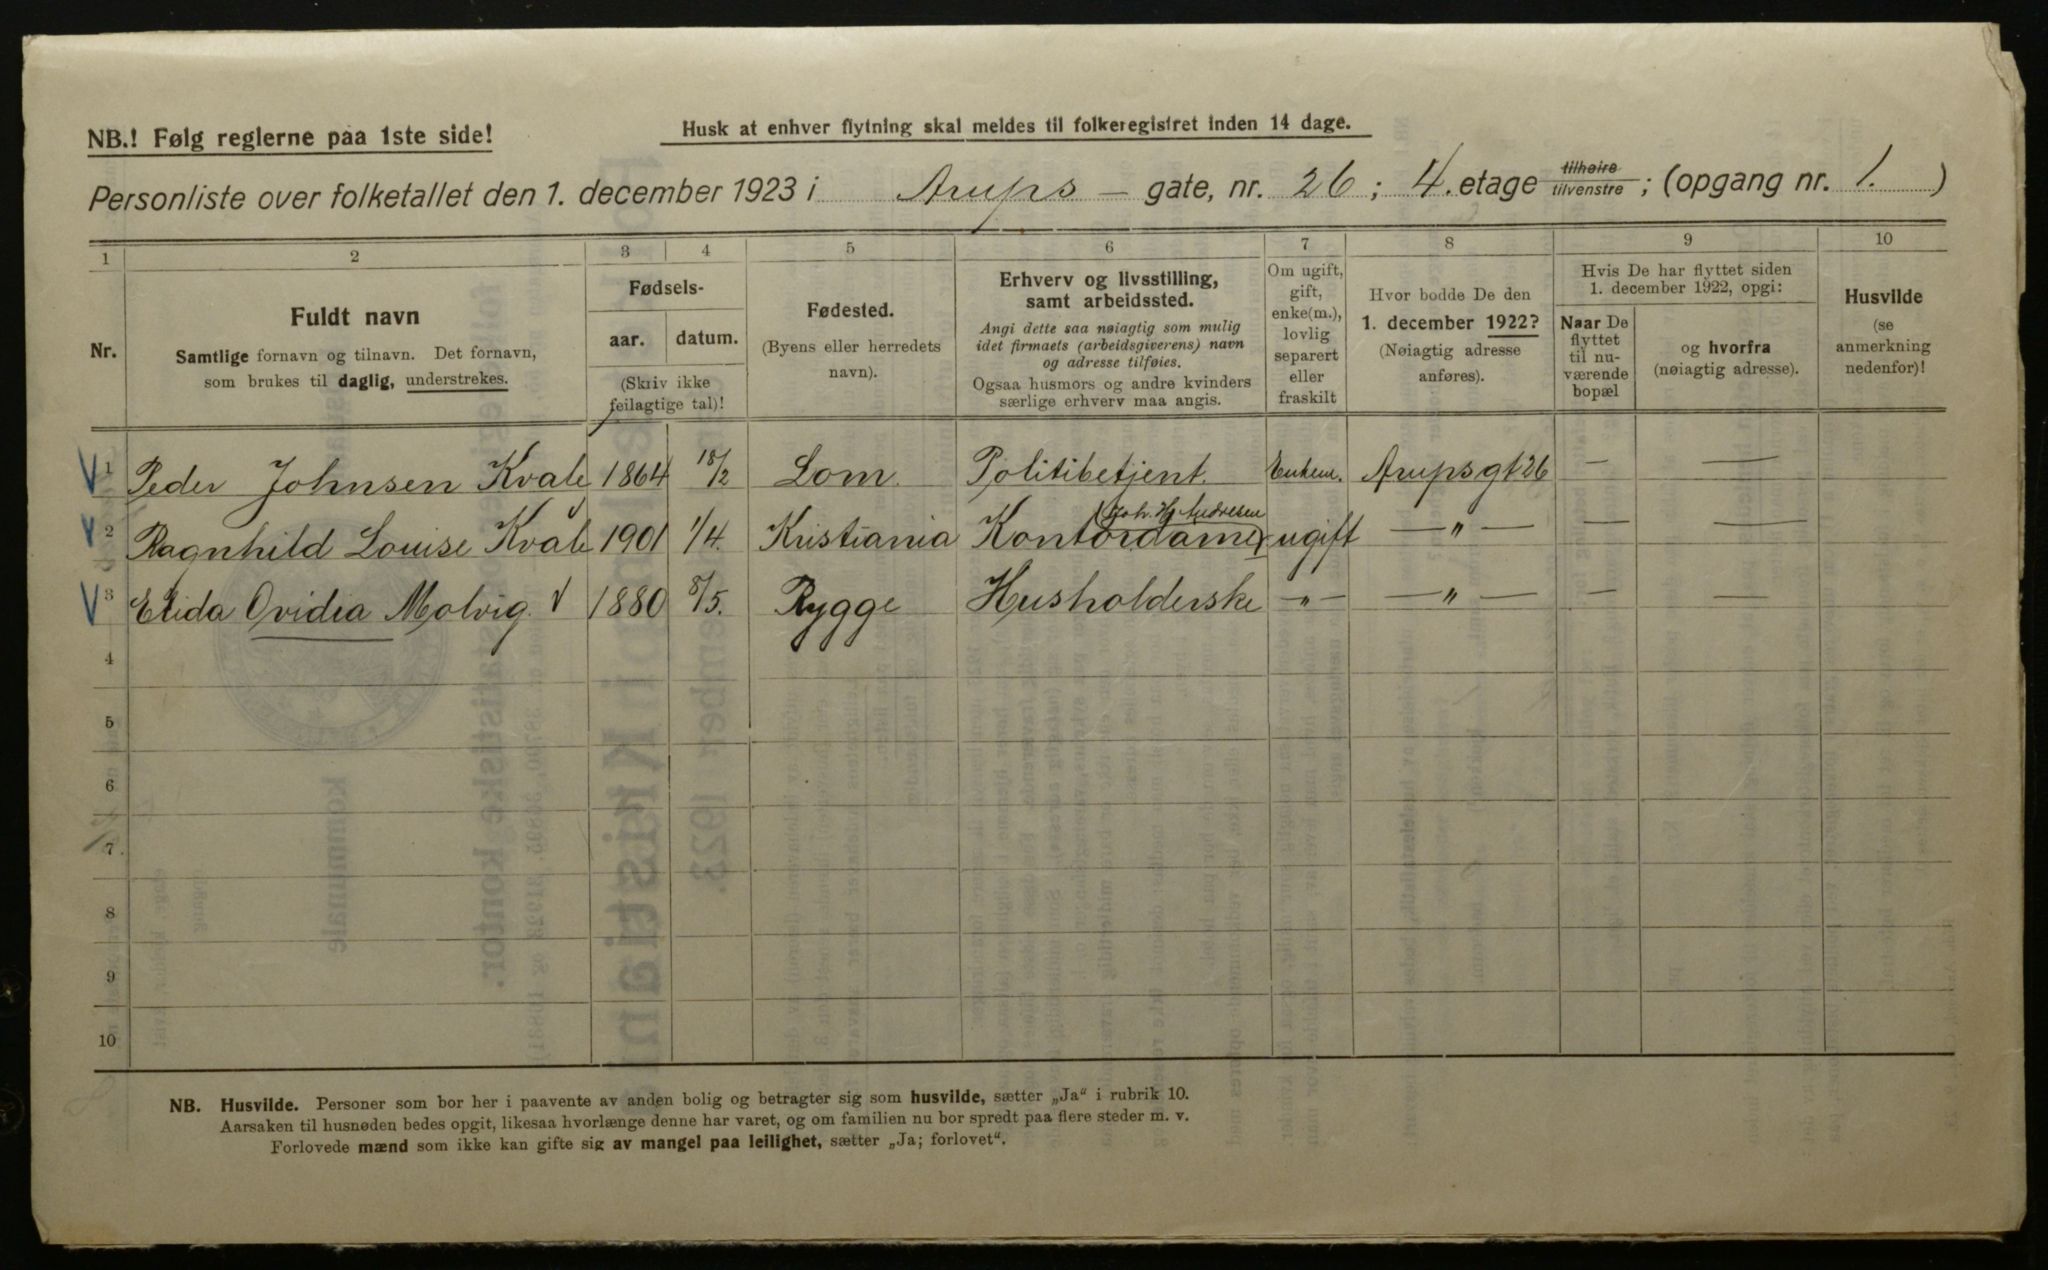 NB.! Følg reglerne paa 1ste side!
Husk at enhver flytning skal meldes til folkeregistret inden 14 dage.
Personliste over folketallet den 1. december 1923 i Arups – gate, nr. 26; 4. etage tilhøire tilvenstre; (opgang nr. 1.)
1 2 3 4 5 6 7 8 9 10
Nr.
Fuldt navn
Samtlige fornavn og tilnavn. Det fornavn,
som brukes til daglig, understrekes.
Fødsels-
aar. datum.
(Skriv ikke
feilagtige tal)!
Fødested.
(Byens eller herredets
navn).
Erhverv og livsstilling,
samt arbeidssted.
Angi dette saa nøiagtig som mulig
idet firmaets (arbeidsgiverens) navn
og adresse tilføies.
Ogsaa husmors og andre kvinders
særlige erhverv maa angis.
Om ugift,
gift,
enke(m.),
lovlig
separert
eller
fraskilt
Hvor bodde De den
1. december 1922?
(Nøiagtig adresse
anføres).
Hvis De har flyttet siden
1. december 1922, opgi:
Naar De
flyttet
til nu-
værende
bopæl
og hvorfra
(nøiagtig adresse).
Husvilde
(se
anmerkning
nedenfor)!
V 1 Peder Johnsen Kvale 1864 18/2 Lom. Politibetjent. Enkem. Arupsgt 26 — —
V 2 Ragnhild Louise Kvale 1901 1/4. Kristiania Kontordame (Joh. Hj Andresen) ugift — „ — — —
V 3 Elida Ovidia Molvig. V 1880 8/5. Rygge Husholderske – „ – — „ — — —
4
5
6
7
8
9
10
NB. Husvilde. Personer som bor her i paavente av anden bolig og betragter sig som husvilde, sætter „Ja“ i rubrik 10.
Aarsaken til husnøden bedes opgit, likesaa hvorlænge denne har varet, og om familien nu bor spredt paa flere steder m. v.
Forlovede mænd som ikke kan gifte sig av mangel paa leilighet, sætter „Ja; forlovet“.